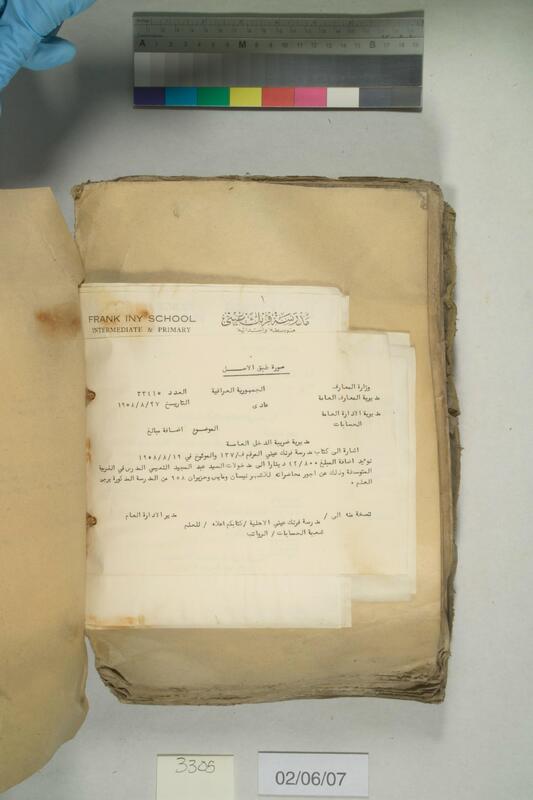 FRANK INY SCHOOL
INTERMEDIATE & PRIMARY
مدرسة فرنك عيني
متوسطة وابتدائية
صورة طبق الاصل
وزارة المعارف
الجمهورية العراقية
العدد ٣٣٤١٥
مديرية المعارف العامة
عادى
التاريخ ١٩٥٨/٨/٢٧
مديرية الادارة العامة
الحسابات
الموضوع اضافة مبالغ
مديرية ضريبة الدخل العامة
اشارة الى كتاب مدرسة فرنك عيني المرقم ف/١٣٧ والموئرخ في ١٩٥٨/٨/١٩
نوئيد اضافة المبلغ ٤٢/٨٠٠ دينارا الى مدخولات السيد عبد المجيد المدرس في الغربية
المتوسطة وذلك عن اجور محاضراته نيسان ومايس وحزيران ٩٥٨ من المدرسة المذكورة يرجى
العلم ٠
نسخة منه الى /
مدير الادارة العام
مدرسة فرنك عيني الاهلية /كتابكم اعلاه / للعلم
شعبة الحسابات / الرواتب
3305
02/06/07